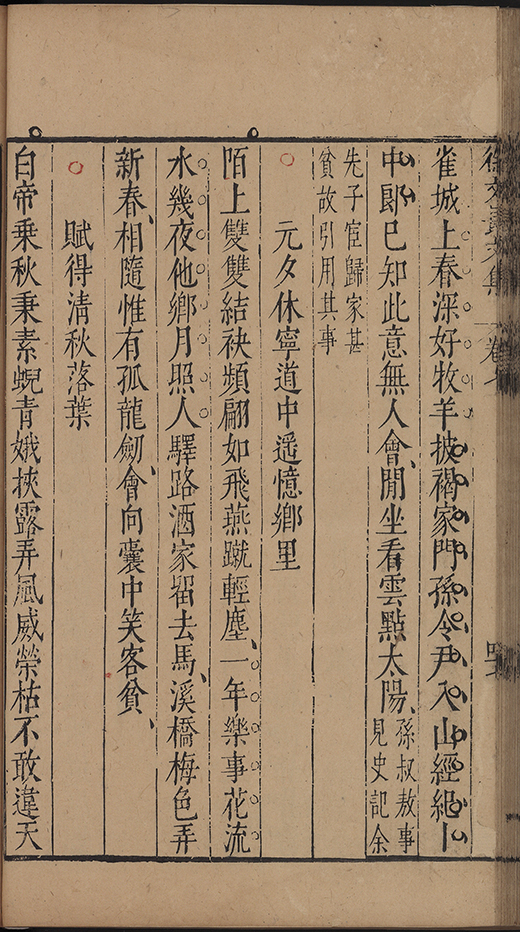 徐文長文集 卷七
雀城上春深好牧羊披褐家門孫令尹入山經紀卜
中郎已知此意無人會、閒坐看雲點太陽、
孫叔敖事
見史記余
先子宦歸家甚
貧故引用其事
元夕休寧道中遥憶鄉里
陌上雙雙結袂頻翩如飛燕蹴輕塵、一年樂事花流
水幾夜他鄉月照人驛路酒家畱去馬、溪橋梅色弄
新春、相隨惟有孤龍劒、會向囊中笑客貧、
賦得清秋落葉
白帝乘秋秉素蜺青娥挾露弄風威榮枯不敢違天